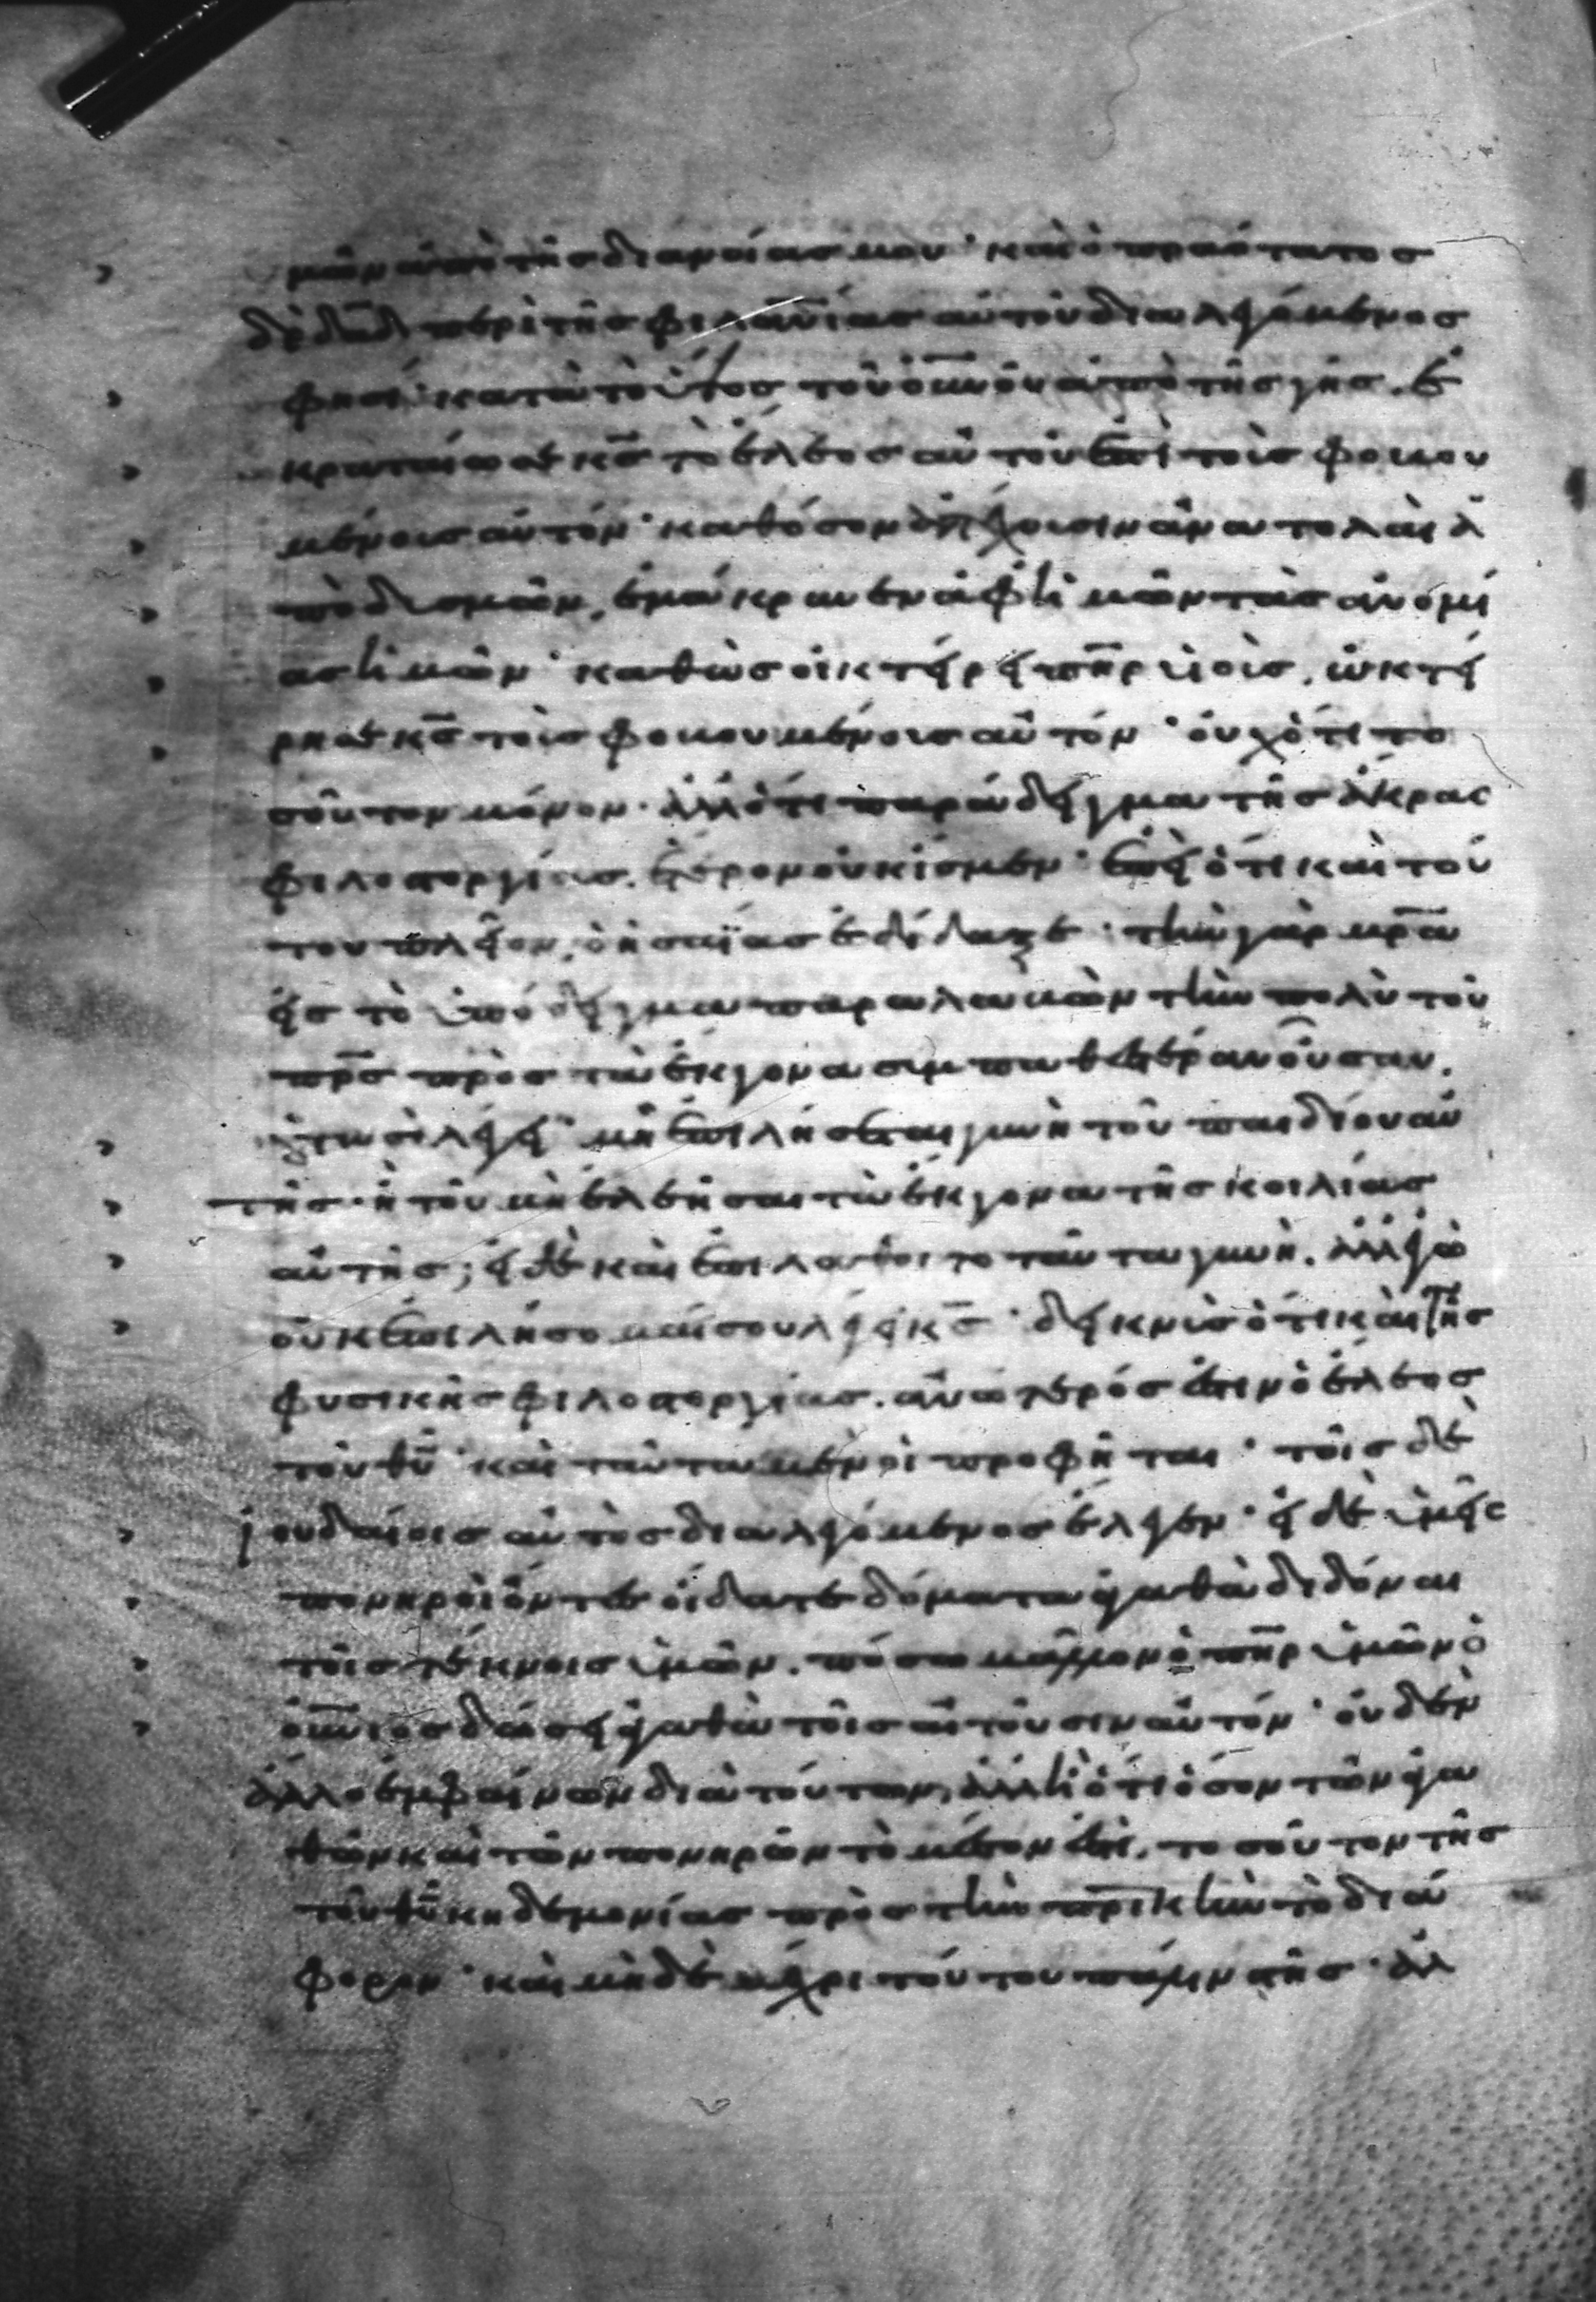 μῶν ἀπὸ τῆς διανοίας μου· καὶ ὁ πραότατος
δὲ δᾱδ περὶ τῆς φιλᾱνίας αὐτοῦ διαλεγόμενος
φησί· κατὰ τὸ ὕψος τοῦ οὐνοῦ ἀπὸ τῆς γῆς. ἐ
κραταίωσε κ̄ς τὸ ἔλεος αὐτοῦ ἐπὶ τοὺς φοβου
μένους αὐτόν· καθόσον ἀπέχουσιν ἀνατολαὶ ἀ
πὸ δυσμῶν, ἐμάκρυνεν ἀφ' ἡμῶν τὰς ἀνομί
ας ἡμῶν· καθὼς οἰκτείρει π̄ηρ υἱοὺς, ὠκτεί
ρησε κ̄ς τοὺς φοβουμένους αὐτόν· οὐχ ὅτι το
σοῦτον μόνον· ἀλλ' ὅτι παράδειγμα τῆς ἄκρας
φιλοστοργίας. ἕτερον οὐκ ἴσμεν· ἐπεὶ ὅτι καὶ τού
του πλεῖον, ὁ ἡσαΐας ἐδίδαξε· τὴν γὰρ μ̄ρα
εἰς τὸ ὑπόδειγμα παραλαβὼν τὴν πολὺ τοῦ
π̄ρς πρὸς τὰ ἔκγονα συμπαθεστέραν οὖσαν.
οὕτωσὶ λέγει· μὴ ἐπιλήσεται γυνὴ τοῦ παιδίου αὐ
τῆς· ἢ τοῦ μὴ ἐλεῆσαι τὰ ἔκγονα τῆς κοιλίας
αὐτῆς; εἰ δὲ καὶ ἐπιλάθοιτο ταῦτα γυνὴ. ἀλλ' ἐγὼ
οὐκ ἐπιλήσομαί σου λέγει κ̄ς· δεικνὺς ὅτι καὶ τῆς
φυσικῆς φιλοστοργίας. ἀνώτερός ἐστιν ὁ ἔλεος
τοῦ θ̄υ· καὶ ταῦτα μὲν οἱ προφῆται· τοῖς δὲ
ἰουδαίοις αὐτὸς διαλεγόμενος ἔλεγεν· εἰ δὲ ὑμεῖς
πονηροὶ ὄντες οἴδατε δόματα ἀγαθὰ διδόναι
τοῖς τέκνοις ὑμῶν. πόσω μᾶλλον ὁ π̄ηρ ὑμῶν ὁ
οὐ̄νιος δώσει ἀγαθὰ τοῖς αἰτοῦσιν αὐτόν· οὐδὲν
ἄλλο ἐμφαίνων διὰ τούτων, ἀλλ' ἢ ὅτι ὅσον τῶν ἀγα
θῶν καὶ τῶν πονηρῶν τὸ μέσον ἐστὶ. τοσοῦτον τῆς
τοῦ θ̄υ κηδεμονίας πρὸς τὴν π̄ρικὴν τὸ διά
φορον· καὶ μηδὲ μέχρι τούτου πάλιν στῆς· ἀλ